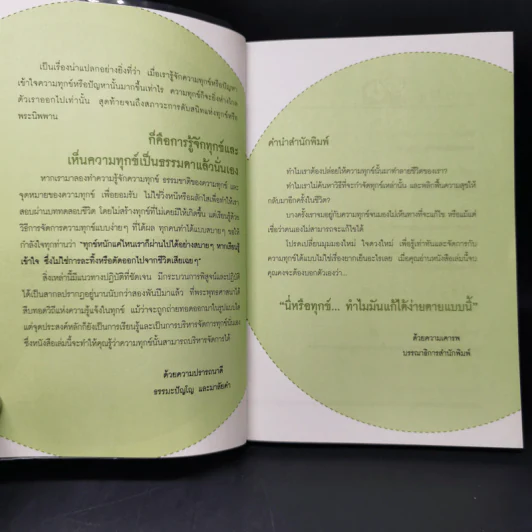 เป็นเรื่องน่าแปลกอย่างยิ่งที่ว่า เมื่อเรารู้จักความทุกข์หรือปัญหา
เข้าใจความทุกข์หรือปัญหานั้นมากขึ้นเท่าไร ความทุกข์ก็จะยิ่งห่างไกล
ตัวเราออกไปเท่านั้น สุดท้ายจนถึงสภาวะการดับสนิทแห่งทุกข์หรือ
พระนิพพาน
ที่คือการรู้จักทุกข์และ
เห็นความทุกข์เป็นธรรมดาแล้วนั่นเอง
หากเรามาลองทำความรู้จักความทุกข์ ธรรมชาติของความทุกข์ และ
จุดหมายของความทุกข์ เพื่อยอมรับ ไม่ใช่วิ่งหนีหรือผลักไสเพื่อทำให้เรา
สอบผ่านบททดสอบชีวิต โดยไม่สร้างทุกข์ที่ไม่เคยมีให้เกิดขึ้น แต่เรียนรู้ด้วย
วิธีการจัดการความทุกข์แบบง่ายๆ ที่ได้ผล ทุกคนทำได้แบบสบายๆ ขอให้
กำลังใจทุกท่านว่า "ทุกข์หนักแค่ไหนเราก็ผ่านไปได้อย่างสบายๆ หากเรียนรู้
เข้าใจ ซึ่งไม่ใช่การละทิ้งหรือตัดออกไปจากชีวิตเสียเฉยๆ"
สิ่งเหล่านี้มีแนวทางปฏิบัติที่ชัดเจน มีกระบวนการพิสูจน์และปฏิบัติ
ได้เป็นสากลปรากฏอยู่นานนับกว่าสองพันปีมาแล้ว ที่พระพุทธศาสนาได้
สืบทอดวิถีแห่งความรู้แจ้งในทุกข์ แม้ว่าจะถูกถ่ายทอดออกมาในรูปแบบใด
แต่จุดประสงค์หลักก็ยังเป็นการเรียนรู้และเป็นการบริหารจัดการทุกข์นั่นเอง
ซึ่งหนังสือเล่มนี้จะทำให้คุณรู้ว่าความทุกข์นั้นสามารถบริหารจัดการได้
ด้วยความปรารถนาดี
ธรรมะปัญโญ และมาลัยคำ
คำนำสำนักพิมพ์
ทำไมเราต้องปล่อยให้ความทุกข์นั้นมาทำลายชีวิตของเรา?
ทำไมเราไม่ค้นหาวิธีที่จะกำจัดทุกข์เหล่านั้น และพลิกฟื้นความสุขให้
กลับมาอีกครั้งในชีวิต?
บางครั้งเราจมอยู่กับความทุกข์จนมองไม่เห็นทางที่จะแก้ไข หรือแม้แต่
เชื่อว่าตนเองไม่สามารถจะแก้ไขได้
โปรดเปลี่ยนมุมมองใหม่ ใจดวงใหม่ เพื่อรู้เท่าทันและจัดการกับ
ความทุกข์ได้แบบไม่ใช่เรื่องยากเย็นอะไรเลย เมื่อคุณอ่านหนังสือเล่มนี้จบ
คุณคงจะต้องบอกตัวเองว่า...
"นี่หรือทุกข์... ทำไมมันแก้ได้ง่ายดายแบบนี้"
ด้วยความเคารพ
บรรณาธิการสำนักพิมพ์